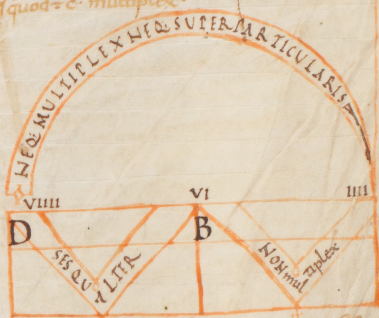 quod÷ c· multiplex
NEQ; MULTIPLEX NEQ; SUPERPARTICULARIS
VIIII VI IIII
D B
SESQUALITER NON multiplex